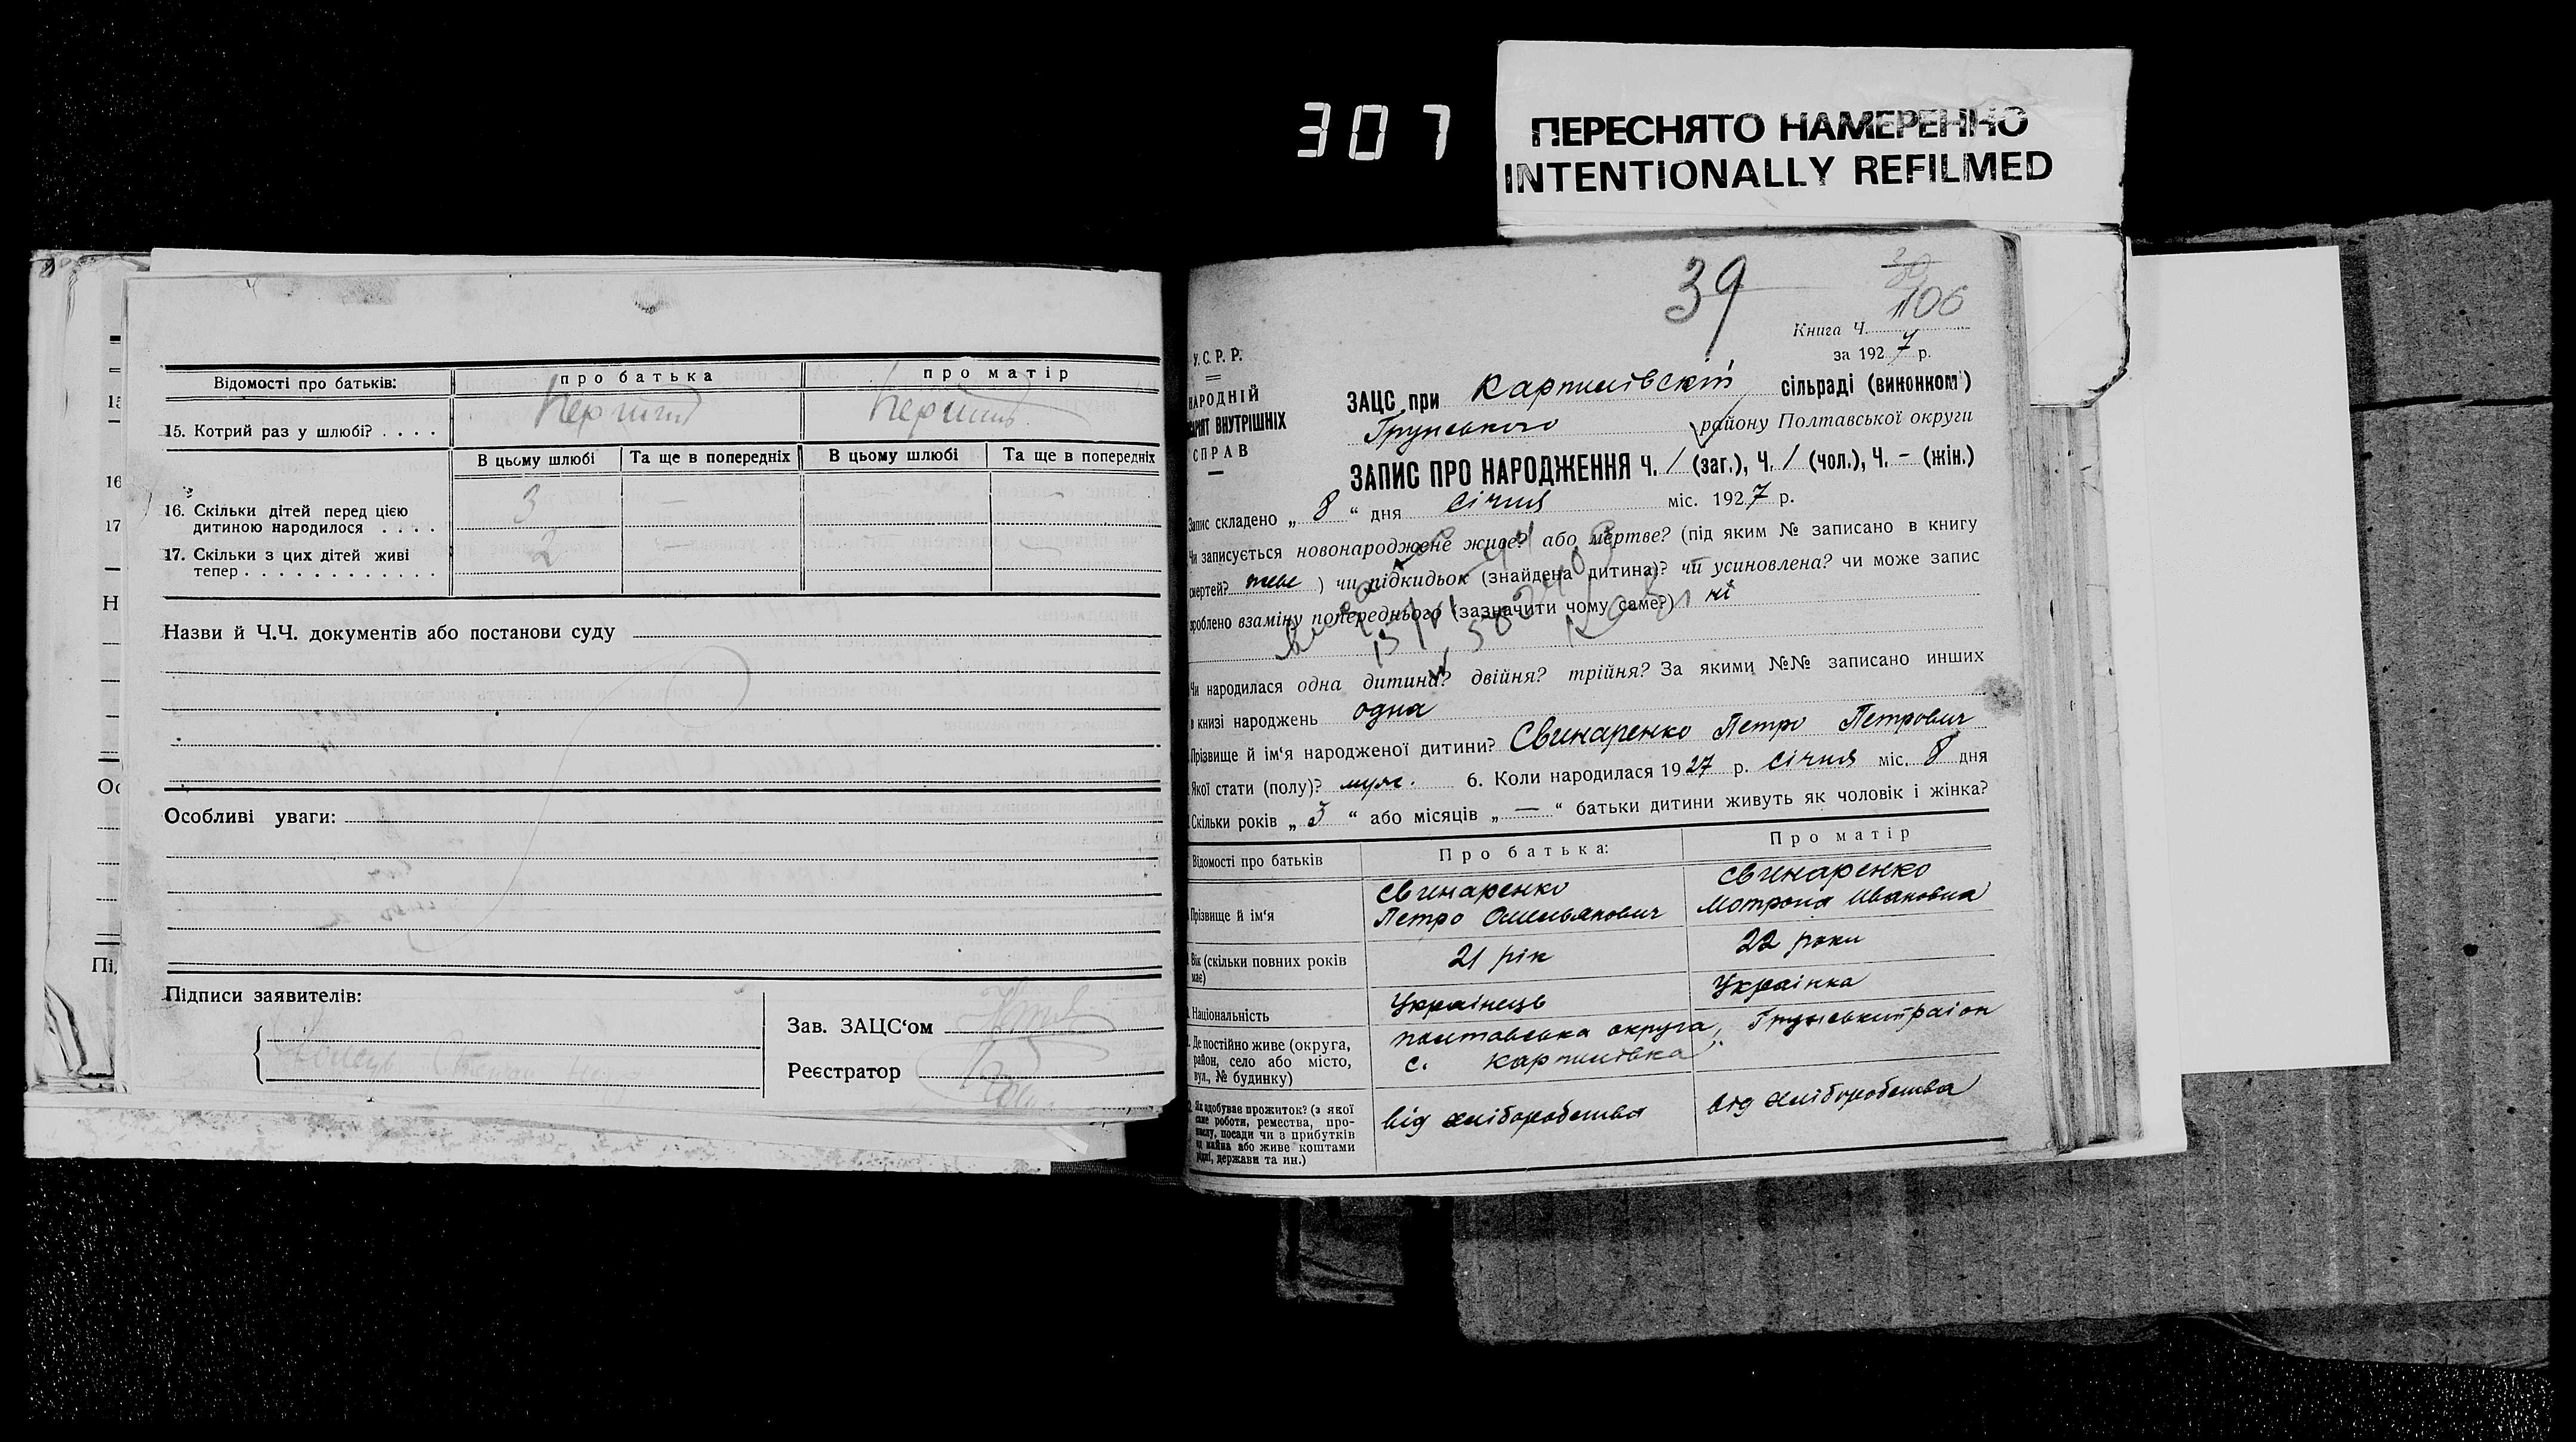 307
ПЕРЕСНЯТО НАМЕРЕННО
INTENTIONALLY REFILMED
Відомості про батьків:
про батька
про матір
15. Котрий раз у шлюбі? . . . .
Перший
Перший
В цьому шлюбі
Та ще в попередніх
В цьому шлюбі
Та ще в попередніх
16. Скільки дітей перед цією
дитиною народилося . . . .
3 — —
17. Скільки з цих дітей живі
тепер . . . . . . . . . . . . .
2 — —
Назви й Ч.Ч. документів або постанови суду
Особливі уваги:
Підписи заявителів:
Зав. ЗАЦС‘ом
Реєстратор
39
39
106
Книга Ч.
за 1927 р.
У.С.Р.Р.
НАРОДНІЙ
ВНУТРІШНІХ
СПРАВ
ЗАЦС при Карпилівскій сільраді (виконком)
Грунського району Полтавської округи
ЗАПИС ПРО НАРОДЖЕННЯ Ч. 1 (заг.), Ч. 1 (чол.), Ч. - (жін.)
Запис складено „ 8 “ дня січня міс. 1927 р.
Чи записується новонароджене живе? або мертве? (під яким № записано в книгу
смертей? живе ) чи підкидьок (знайдена дитина)? чи усиновлена? чи може запис
зроблено взаміну попереднього (зазначити чому саме?) ні
Чи народилася одна дитина? двійня? трійня? За якими №№ записано инших
в книзі народжень одна
Прізвище й ім‘я народженої дитини? Свинаренко Петро Петрович
Якої стати (полу)? муж. 6. Коли народилася 1927 р. січня міс. 8 дня
Скільки років „ 3 “ або місяців „ — “ батьки дитини живуть як чоловік і жінка?
Відомості про батьків
Про батька:
Про матір
Прізвище й ім‘я
Свинаренко
Петро Омельянович
Свинаренко
Мотрона Ивановна
Вік (скільки повних років
має)
21 рік
22 роки
Національність
Українець
Українка
Де постійно живе (округа,
район, село або місто,
вул., № будинку)
полтавська округа, Грунський район
с. Карпилівка
Як здобуває прожиток? (з якої
саме роботи, ремества, про-
мислу, посади чи з прибутків
од майна або живе коштами
рідні, держави та ин.)
від хліборобства
від хліборобства